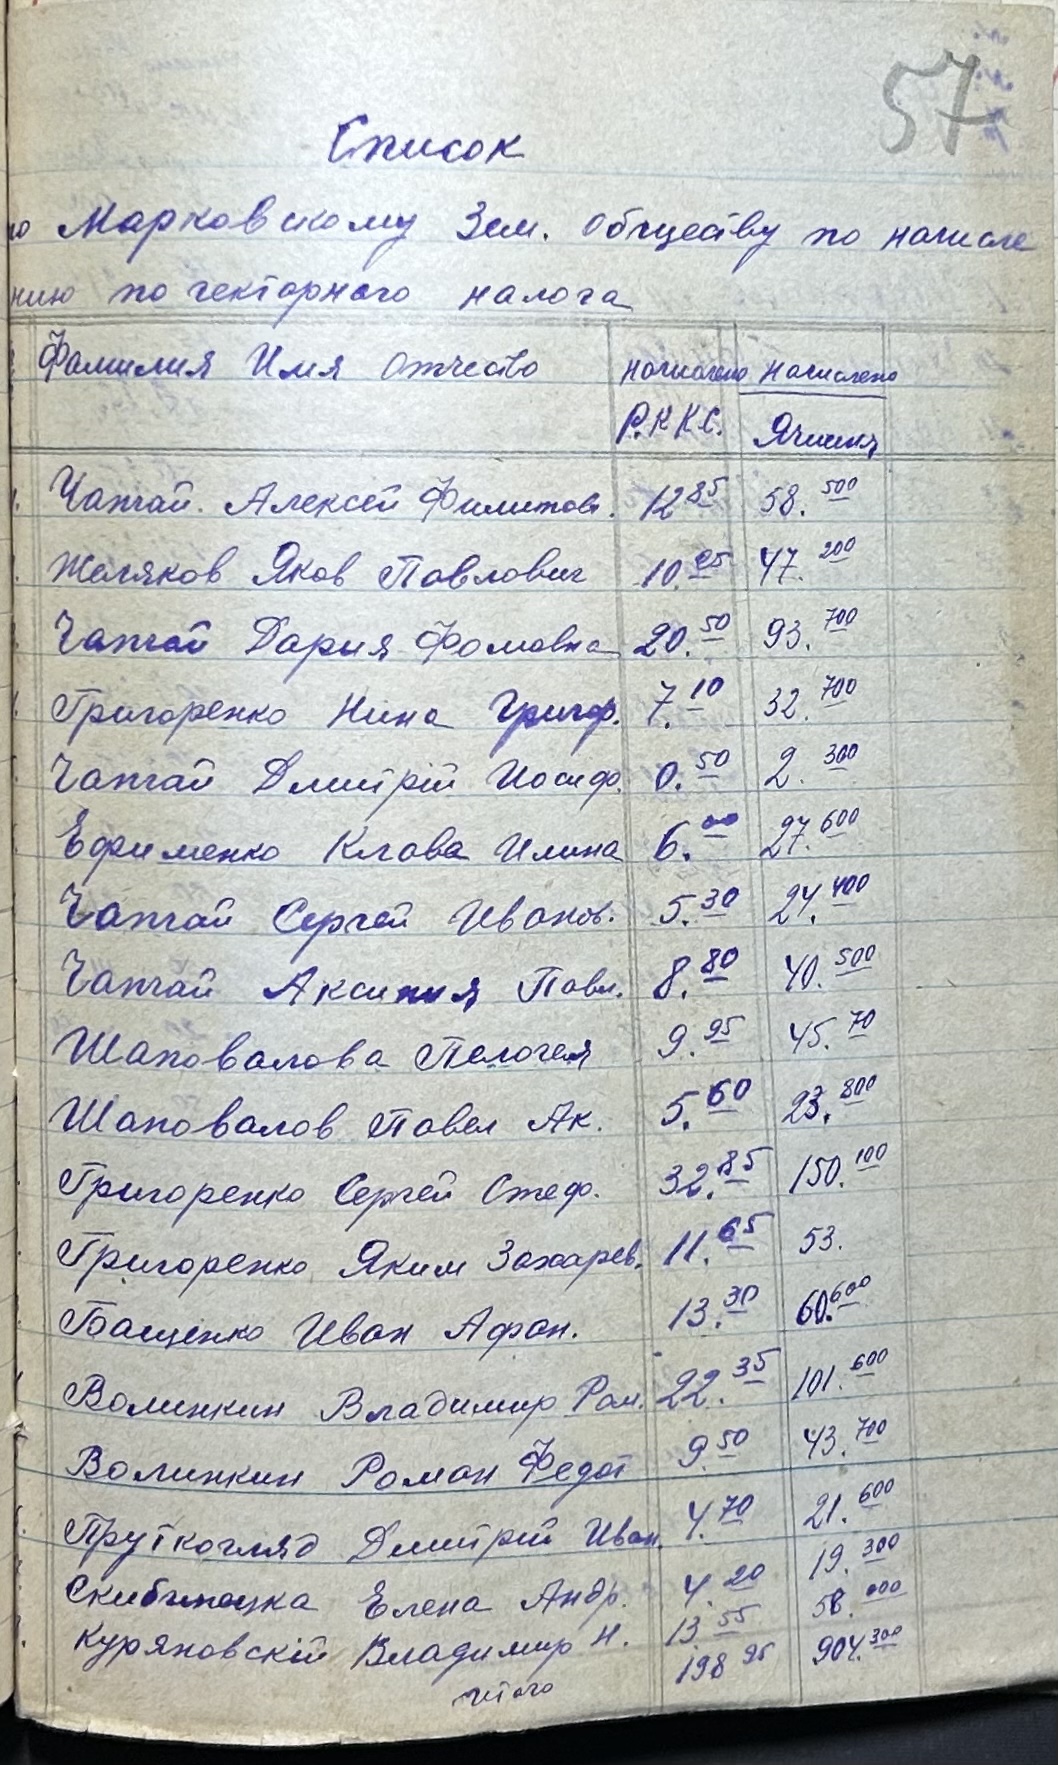 57
Список
по Марковскому Зем. Обществу по начисле
нию по гектарного налога
Фамилия Имя Отчество начислено начислено
Р.К.К.С. Ячменя
Чапчай. Алексей Филипов. 12 85 58. 500
Желяков Яков Павлович 10. 25 47. 200
Чапчай Дария Фомовна 20. 50 93. 700
Григоренко Нина Григор. 7. 10 32. 700
Чапчай Дмитрій Иосиф. 0. 50 2. 300
Ефименко Клава Илина 6. 00 27. 600
Чапчай Сергей Иванов. 5. 30 24. 400
Чапчай Аксиния Павл. 8. 80 40. 500
Шаповалова Пелогея 9. 95 45. 70
Шаповалов Павел Ак. 5. 60 23. 800
Григоренко Сергей Стеф. 32. 85 150. 100
Григоренко Яким Захарев. 11. 65 53.
Бащенко Иван Афан. 13. 30 60. 600
Волинкин Владимир Ром. 22. 35 101. 600
Волинкин Роман Федот 9. 50 43. 700
Пруткогляд Дмитрій Иван. 4. 70 21. 600
Елена Андр. 4. 20 19. 300
Куряновскій Владимир Н. 13. 55 58. 000
итого 198 95 904. 300